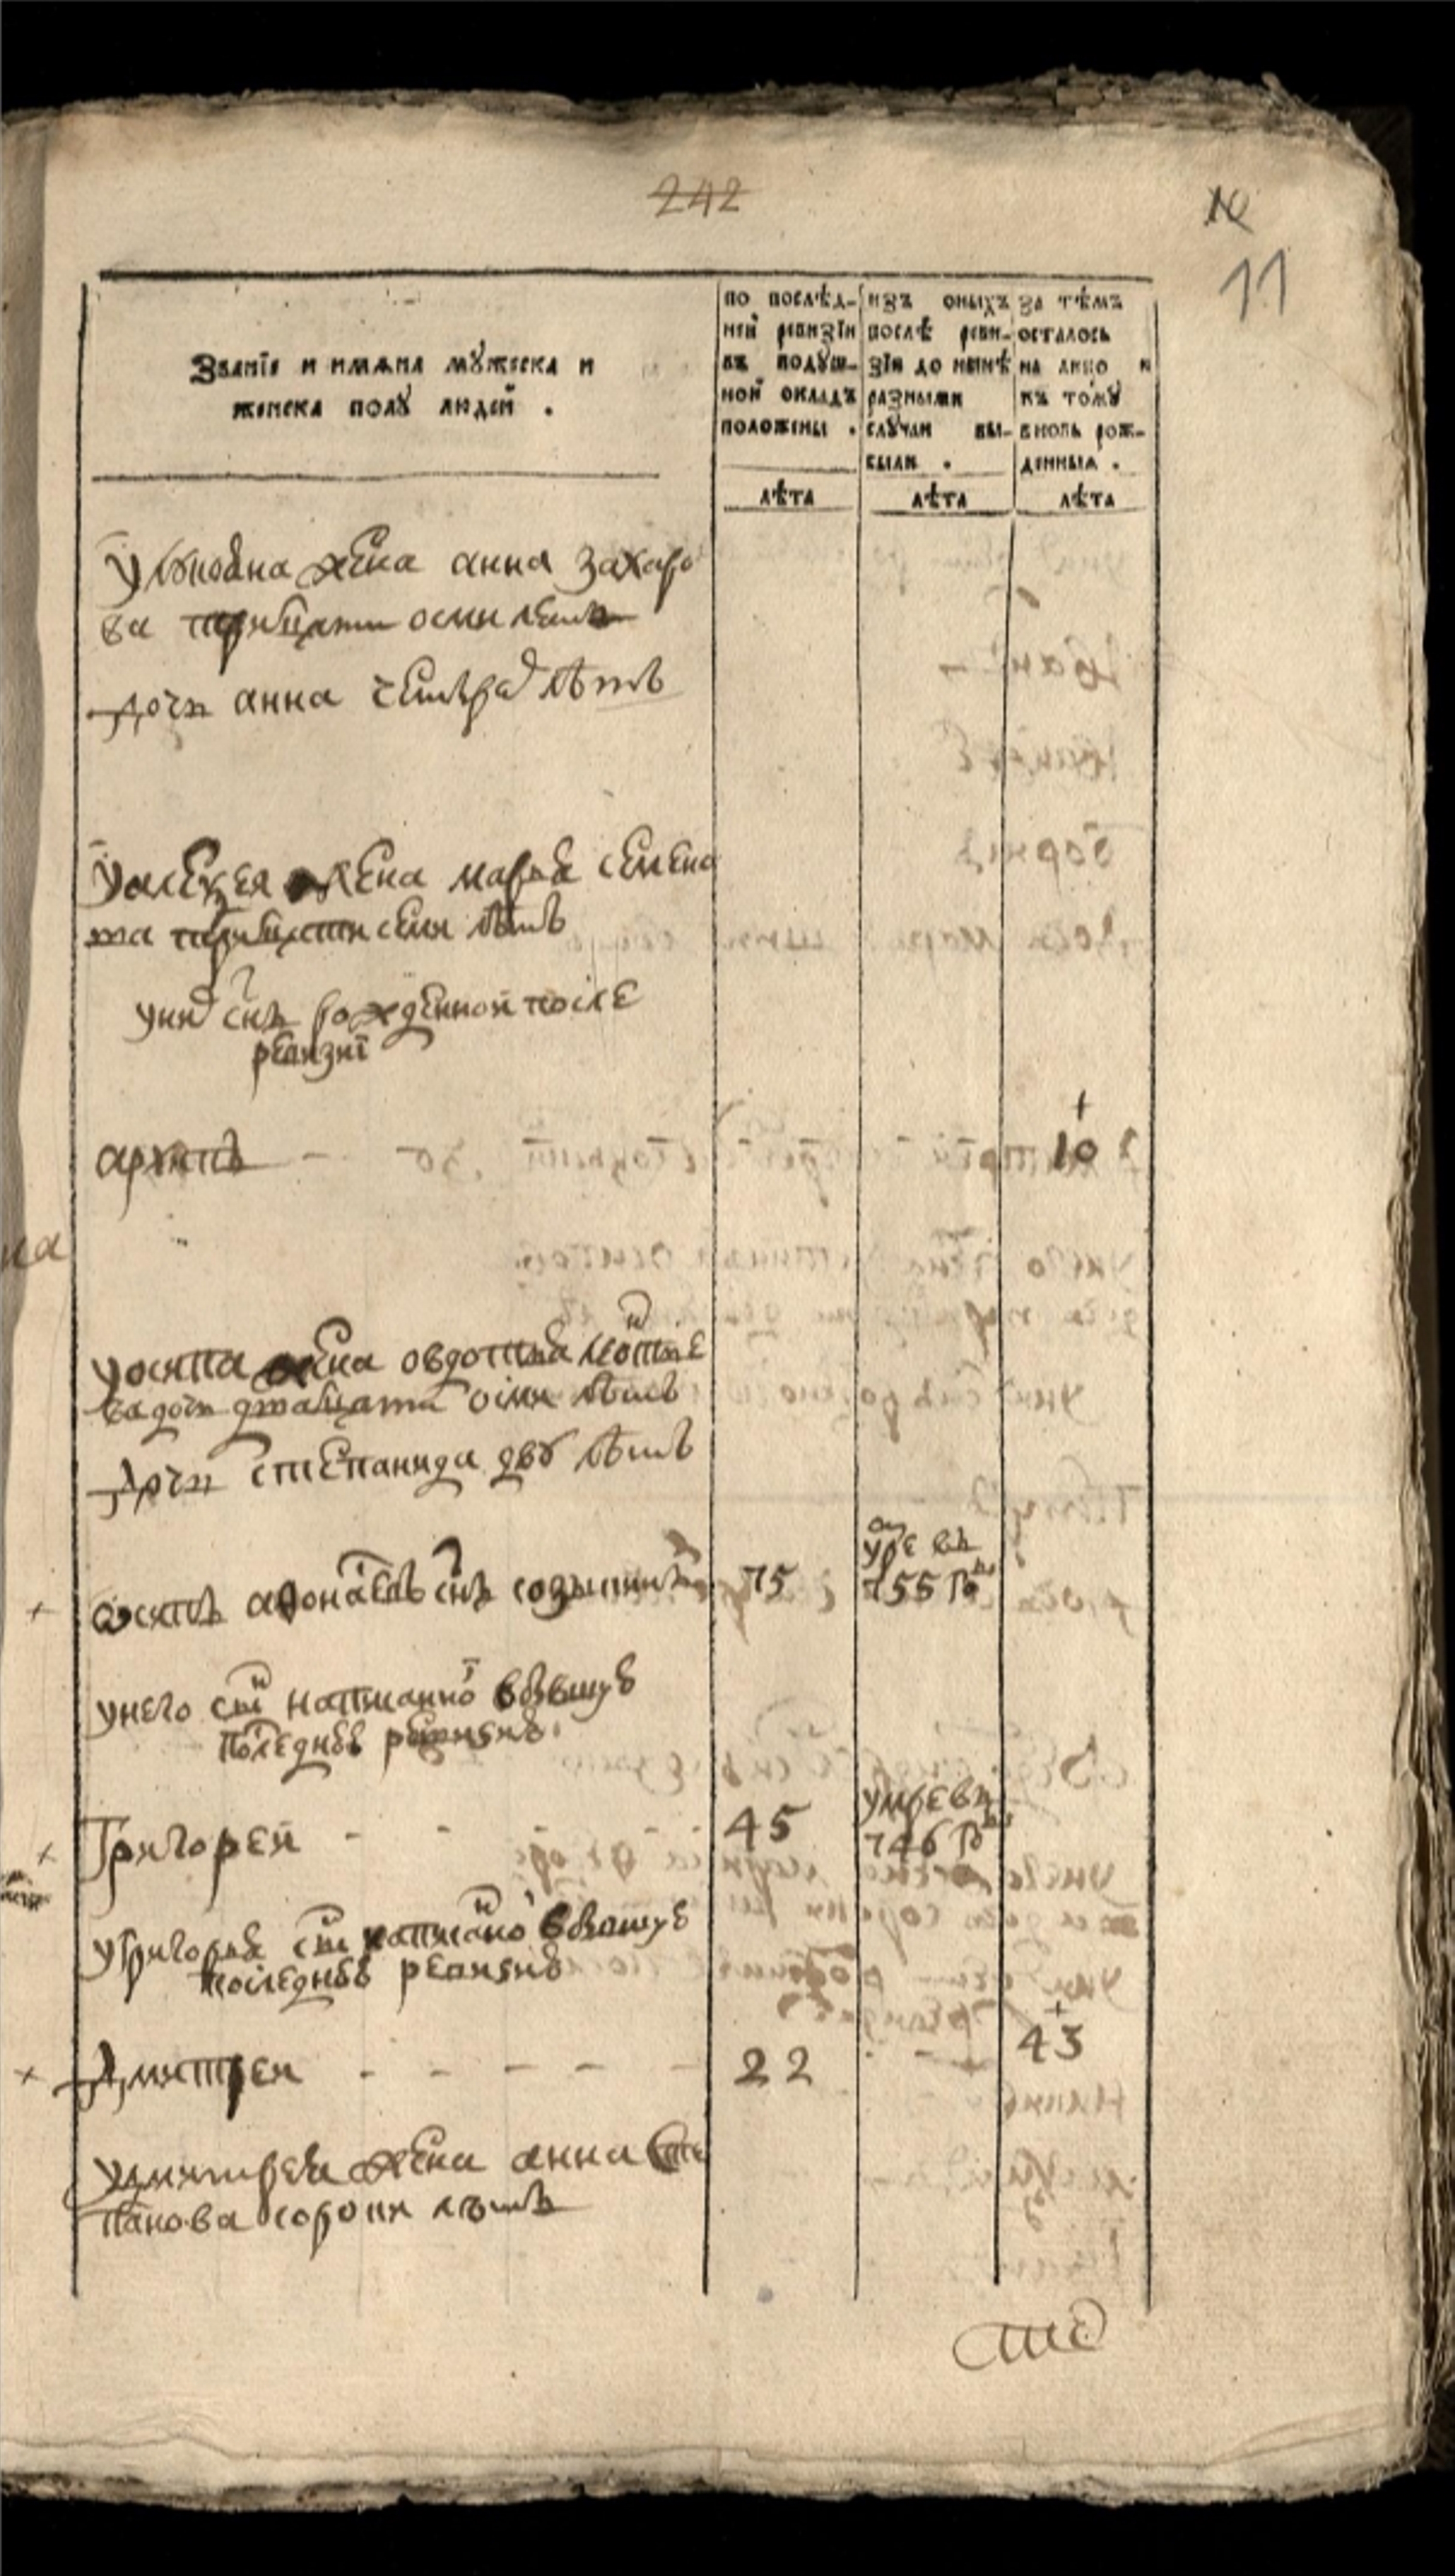 242
11
Званїѧ и имѧна мꙋжеска и
женска полꙋ людей .
по послѣд-
ней ревизїи
въ подꙋш-
ной окладъ
положены .
лѣта
изъ оныхъ
послѣ реви-
зїи до нынѣ
разными
слꙋчаи вы-
были .
лѣта
за тѣмъ
осталось
на лицо и
къ томꙋ
вновь рож-
денныѧ .
лѣта
жена анна захаро
ва тритцати осми летъ
дочи анна лѣтъ
у алексея жена марья семено
ва тритцати семи лѣтъ
у них снъ рожденной после
ревизиї
архипъ 10
у осипа жена овдотья
дочь дватцати осми лѣтъ
дочи степанида дву лѣтъ
осипъ снъ 75 умре въ
755 го
у него снъ написанной в бывшую
последнюю ревизию
Григорей 45 умре въ
746 го
у Григорья снъ написанной в бывшую
последнюю ревизию
Дмитрей 22 43
у Дмитрея жена анна сте
панова сороки лѣтъ